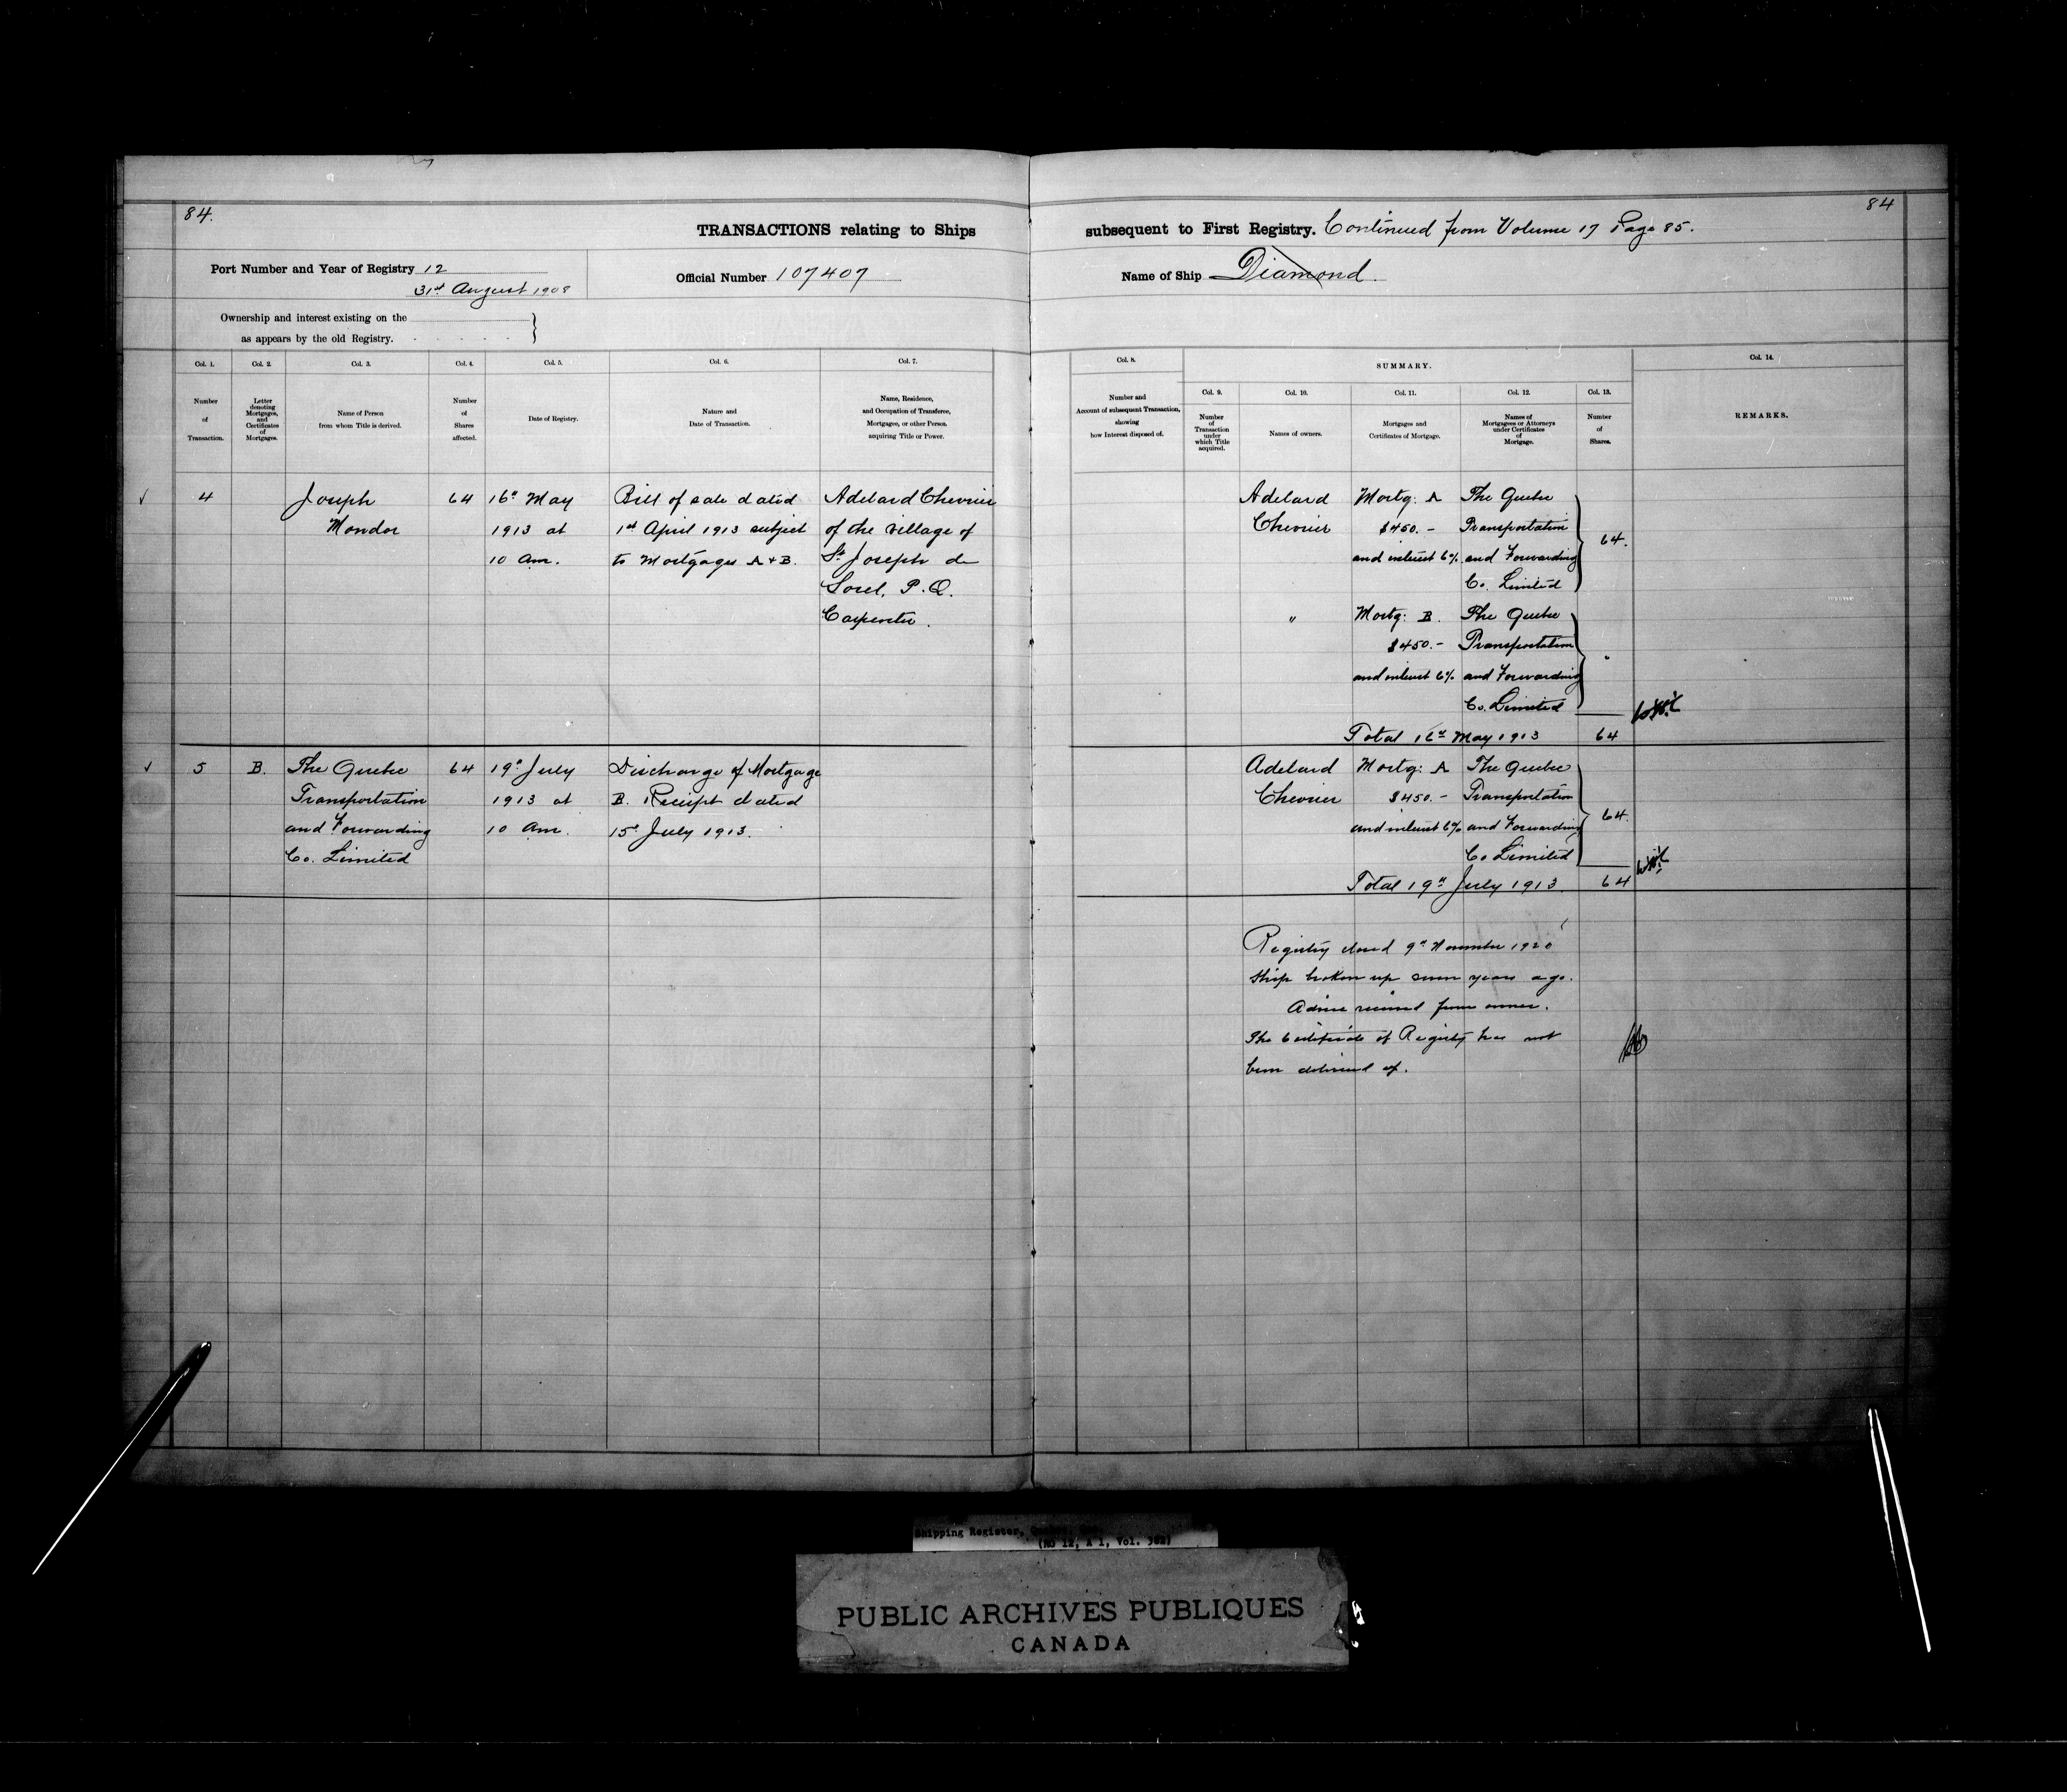 84.
84
TRANSACTIONS relating to Ships
subsequent to First Registry. Continued from Volume 17 Page 85.
Port Number and Year of Registry 12
31st August 1908
Official Number 107407
Name of Ship Diamond
Ownership and interest existing on the
as appears by the old Registry.
Col. 1.
Number
of
Transaction.
Col. 2.
Letter
denoting
Mortgages,
and
Certificates
of
Mortgages.
Col. 3.
Name of Person
from whom Title is derived.
Col. 4.
Number
of
Shares
affected.
Col. 5.
Date of Registry.
Col. 6.
Nature and
Date of Transaction.
Col. 7.
Name, Residence,
and Occupation of Transferee,
Mortgagee, or other Person
acquiring Title or Power.
Col. 8.
Number and
Account of subsequent Transaction,
showing
how Interest disposed of.
SUMMARY.
Col. 9.
Number
of
Transaction
under
which Title
acquired.
Col. 10.
Names of owners.
Col. 11.
Mortgages and
Certificates of Mortgage.
Col. 12.
Names of
Mortgagees or Attorneys
under Certificates
of
Mortgage.
Col. 13.
Number
of
Shares.
Col. 14.
REMARKS.
4
Joseph
Mondor
64
16th May
1913 at
10 am.
Bill of sale dated
1st April 1913 subject
to Mortgages A + B.
Adelard Chevrier
of the village of
St Joseph de
Sorel, P.Q.
Carpenter.
Adelard
Chevrier
Mortg: A
$450.-
and interest 6%
The Quebec
Transportation
and Forwarding
Co. Limited
64.
"
Mortg: B.
$450.-
and interest 6%
The Quebec
Transportation
and Forwarding
Co. Limited
"
Total 16th May 1913 64
5
B.
The Quebec
Transportation
and Forwarding
Co. Limited
64
19th July
1913 at
10 am.
Discharge of Mortgage
B. Receipt dated
15th July 1913.
Adelard
Chevrier
Mortg: A
$450.-
and interest 6%
The Quebec
Transportation
and Forwarding
Co Limited
64.
Total 19th July 1913. 64
Registry closed 9th November 1920
Ship broken up seven years ago.
Advice received from owner.
The Certificate of Registry has not
been delivered up.
Shipping Register,
(RG 12, A 1, Vol. 382)
PUBLIC ARCHIVES PUBLIQUES
CANADA